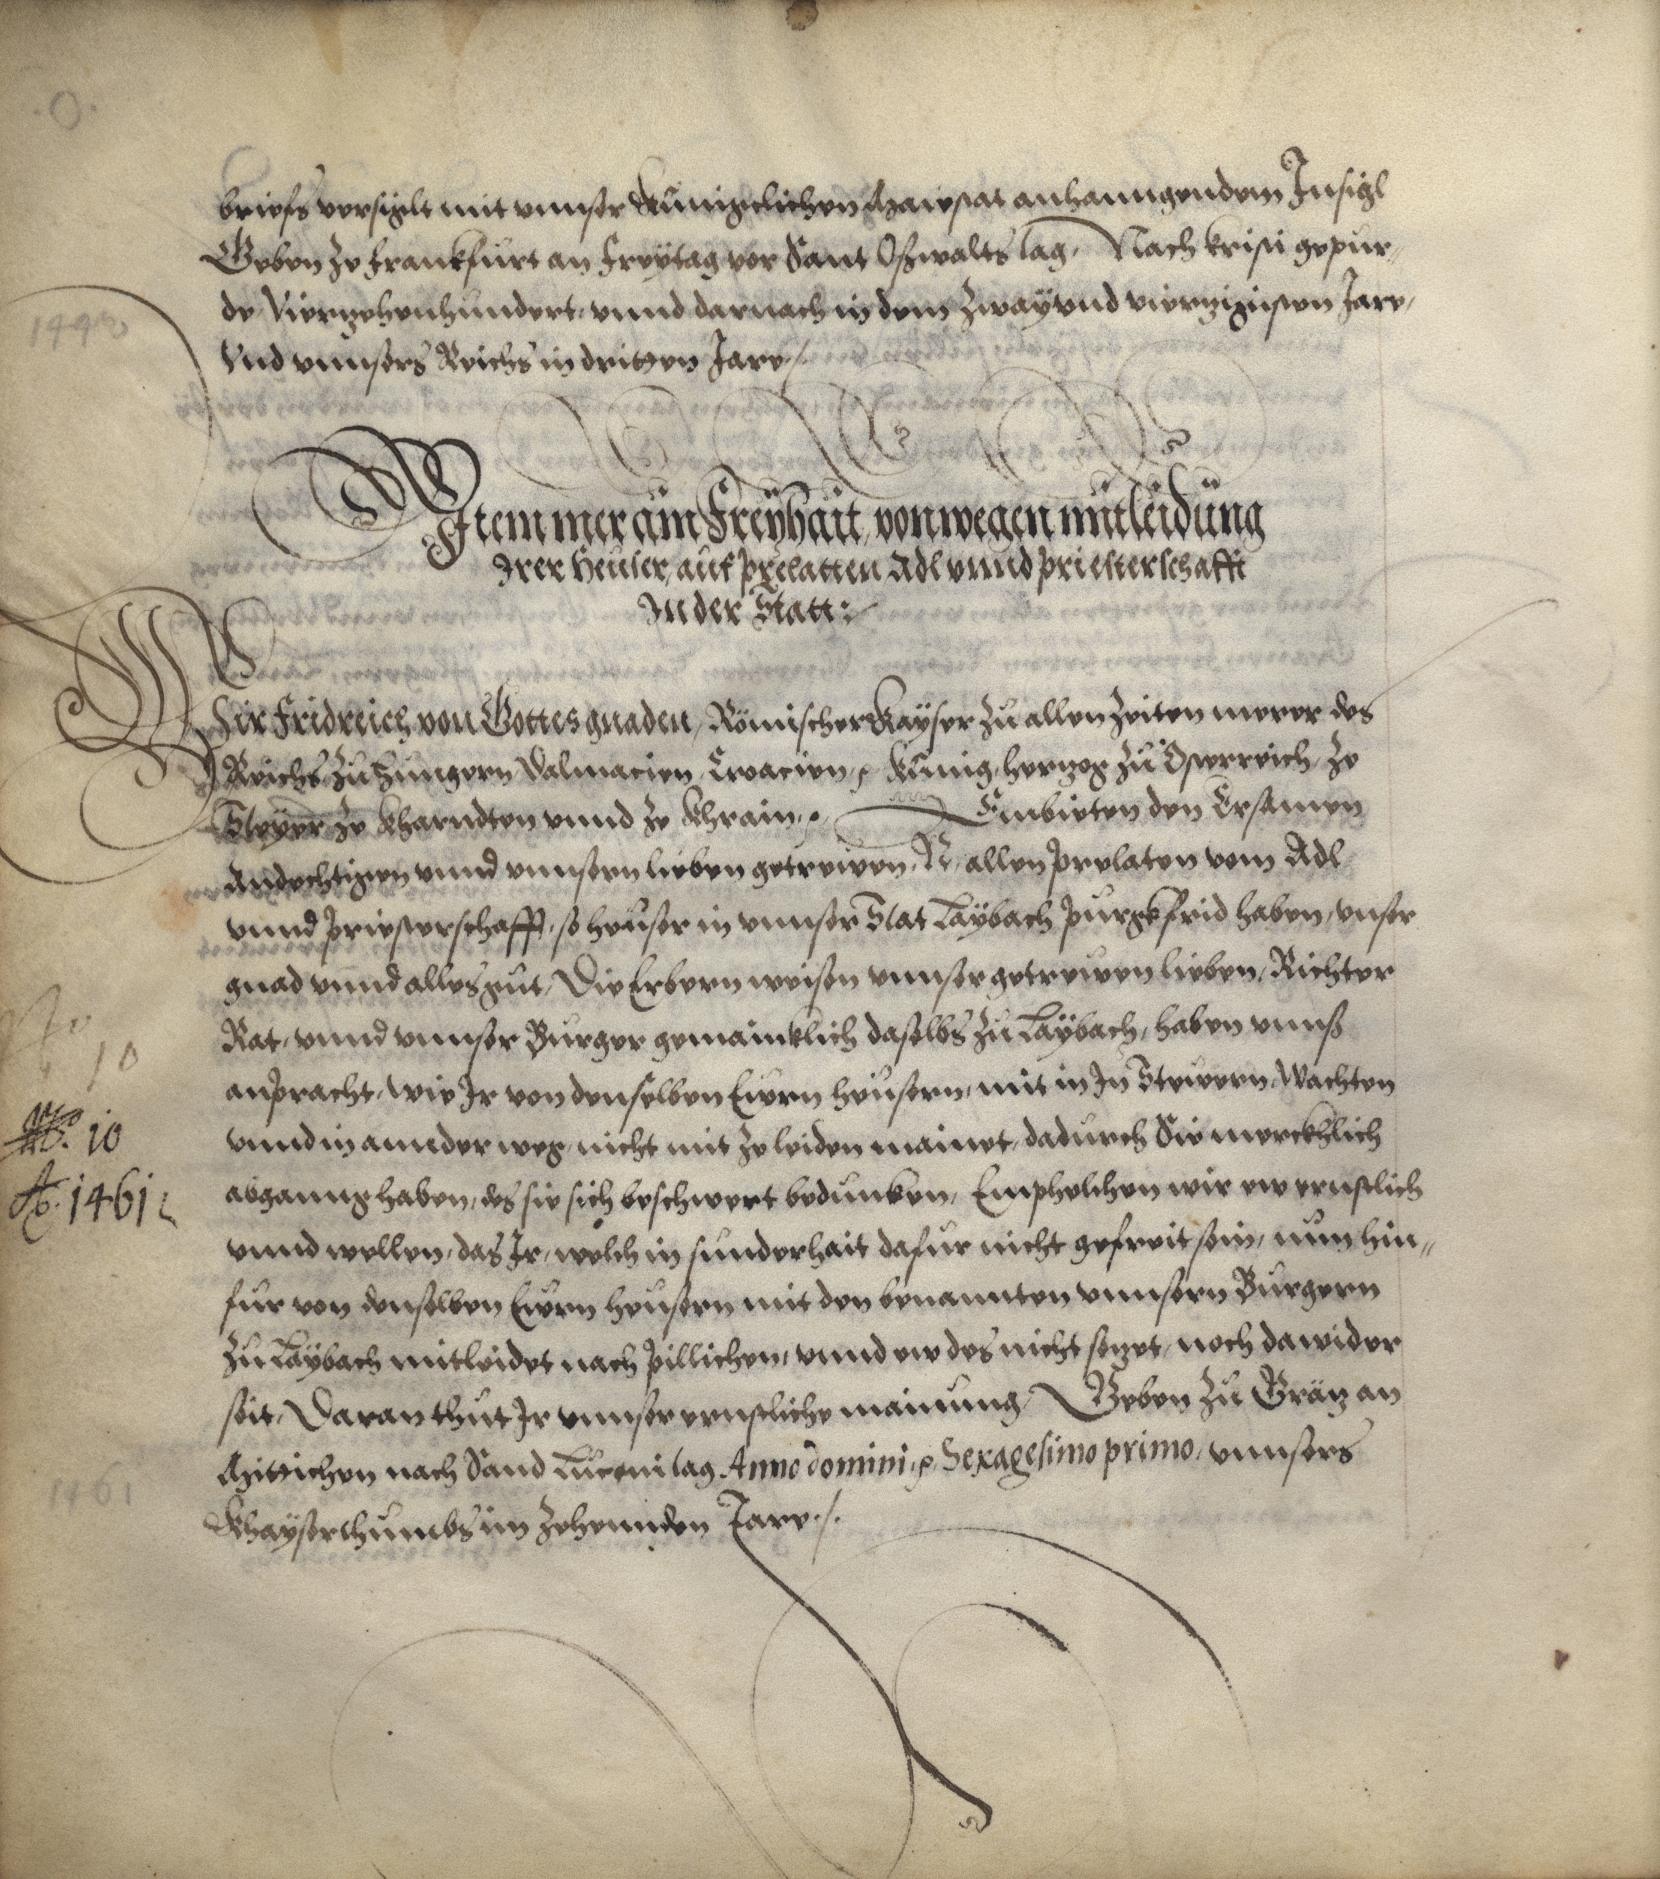 briefs versiglt mit unnser Kunigclichen Maiestat anhanngendem Insigl
Geben ze Franckfurt an Freytag vor Sant Oßwalts tag, Nach kristi gepur„
de Viertzehenhundert, unnd darnach in dem Zwayund viertzigisten Jare,
Und unnsers Reichs in dritten Jare ./.
Item mer ain Freyhait, von wegen mitleidung
Irer Heuser, auf Prelatten Adl unnd Priesterschafft
In der Statt :/
1442
Wir Fridreich von Gottes gnaden, Römischer Kayser zu allen Zeiten merer des
Reichs, zu Hungern, Dalmacien, Croacien, ꝛc Kunig, hertzog zu Österreich, ze
Steyer ze Kharndten unnd ze Khrain, ꝛc. Embieten den Ersamen
Andechtigen unnd unnsern lieben getrewen, N. allen Prelaten vom Adl
unnd Priesterschafft, so heuser in unnser Stat Laybach Purgkfrid haben, unser
gnad unnd alles gut, Die Erbern weisen unnser getrewen lieben, Richter
Rat, unnd unnser Burger gemainklich daselbs zu Laybach, haben unnß
anpracht, wie Ir von denselben Ewrn heusern, mit in In Stewern, Wachten
unnd in annder weg, nicht mit ze leiden mainet, dadurch Sie merckhlich
abganng haben, des sie sich beschwert bedunken, Emphelhen wir ew ernstlich
unnd wellen, das Ir, welch in sunderhait dafur nicht gefreit sein, nun hin„
fur von denselben Ewrn heusern mit den benannten unnsern Burgern
zu Laybach mitleidet nach pillichen, unnd ew des nicht setzet, noch dawider
seit, Daran thut Ir unnser ernstliche mainung, Geben zu Grätz an
Mittichen nach Sand Luceni tag Anno domini, ꝛc Sexagesimo primo, unnsers
Khayserthumbs im Zehennden Jare ./.
No
10
No. 10
Ao. 1461
1461